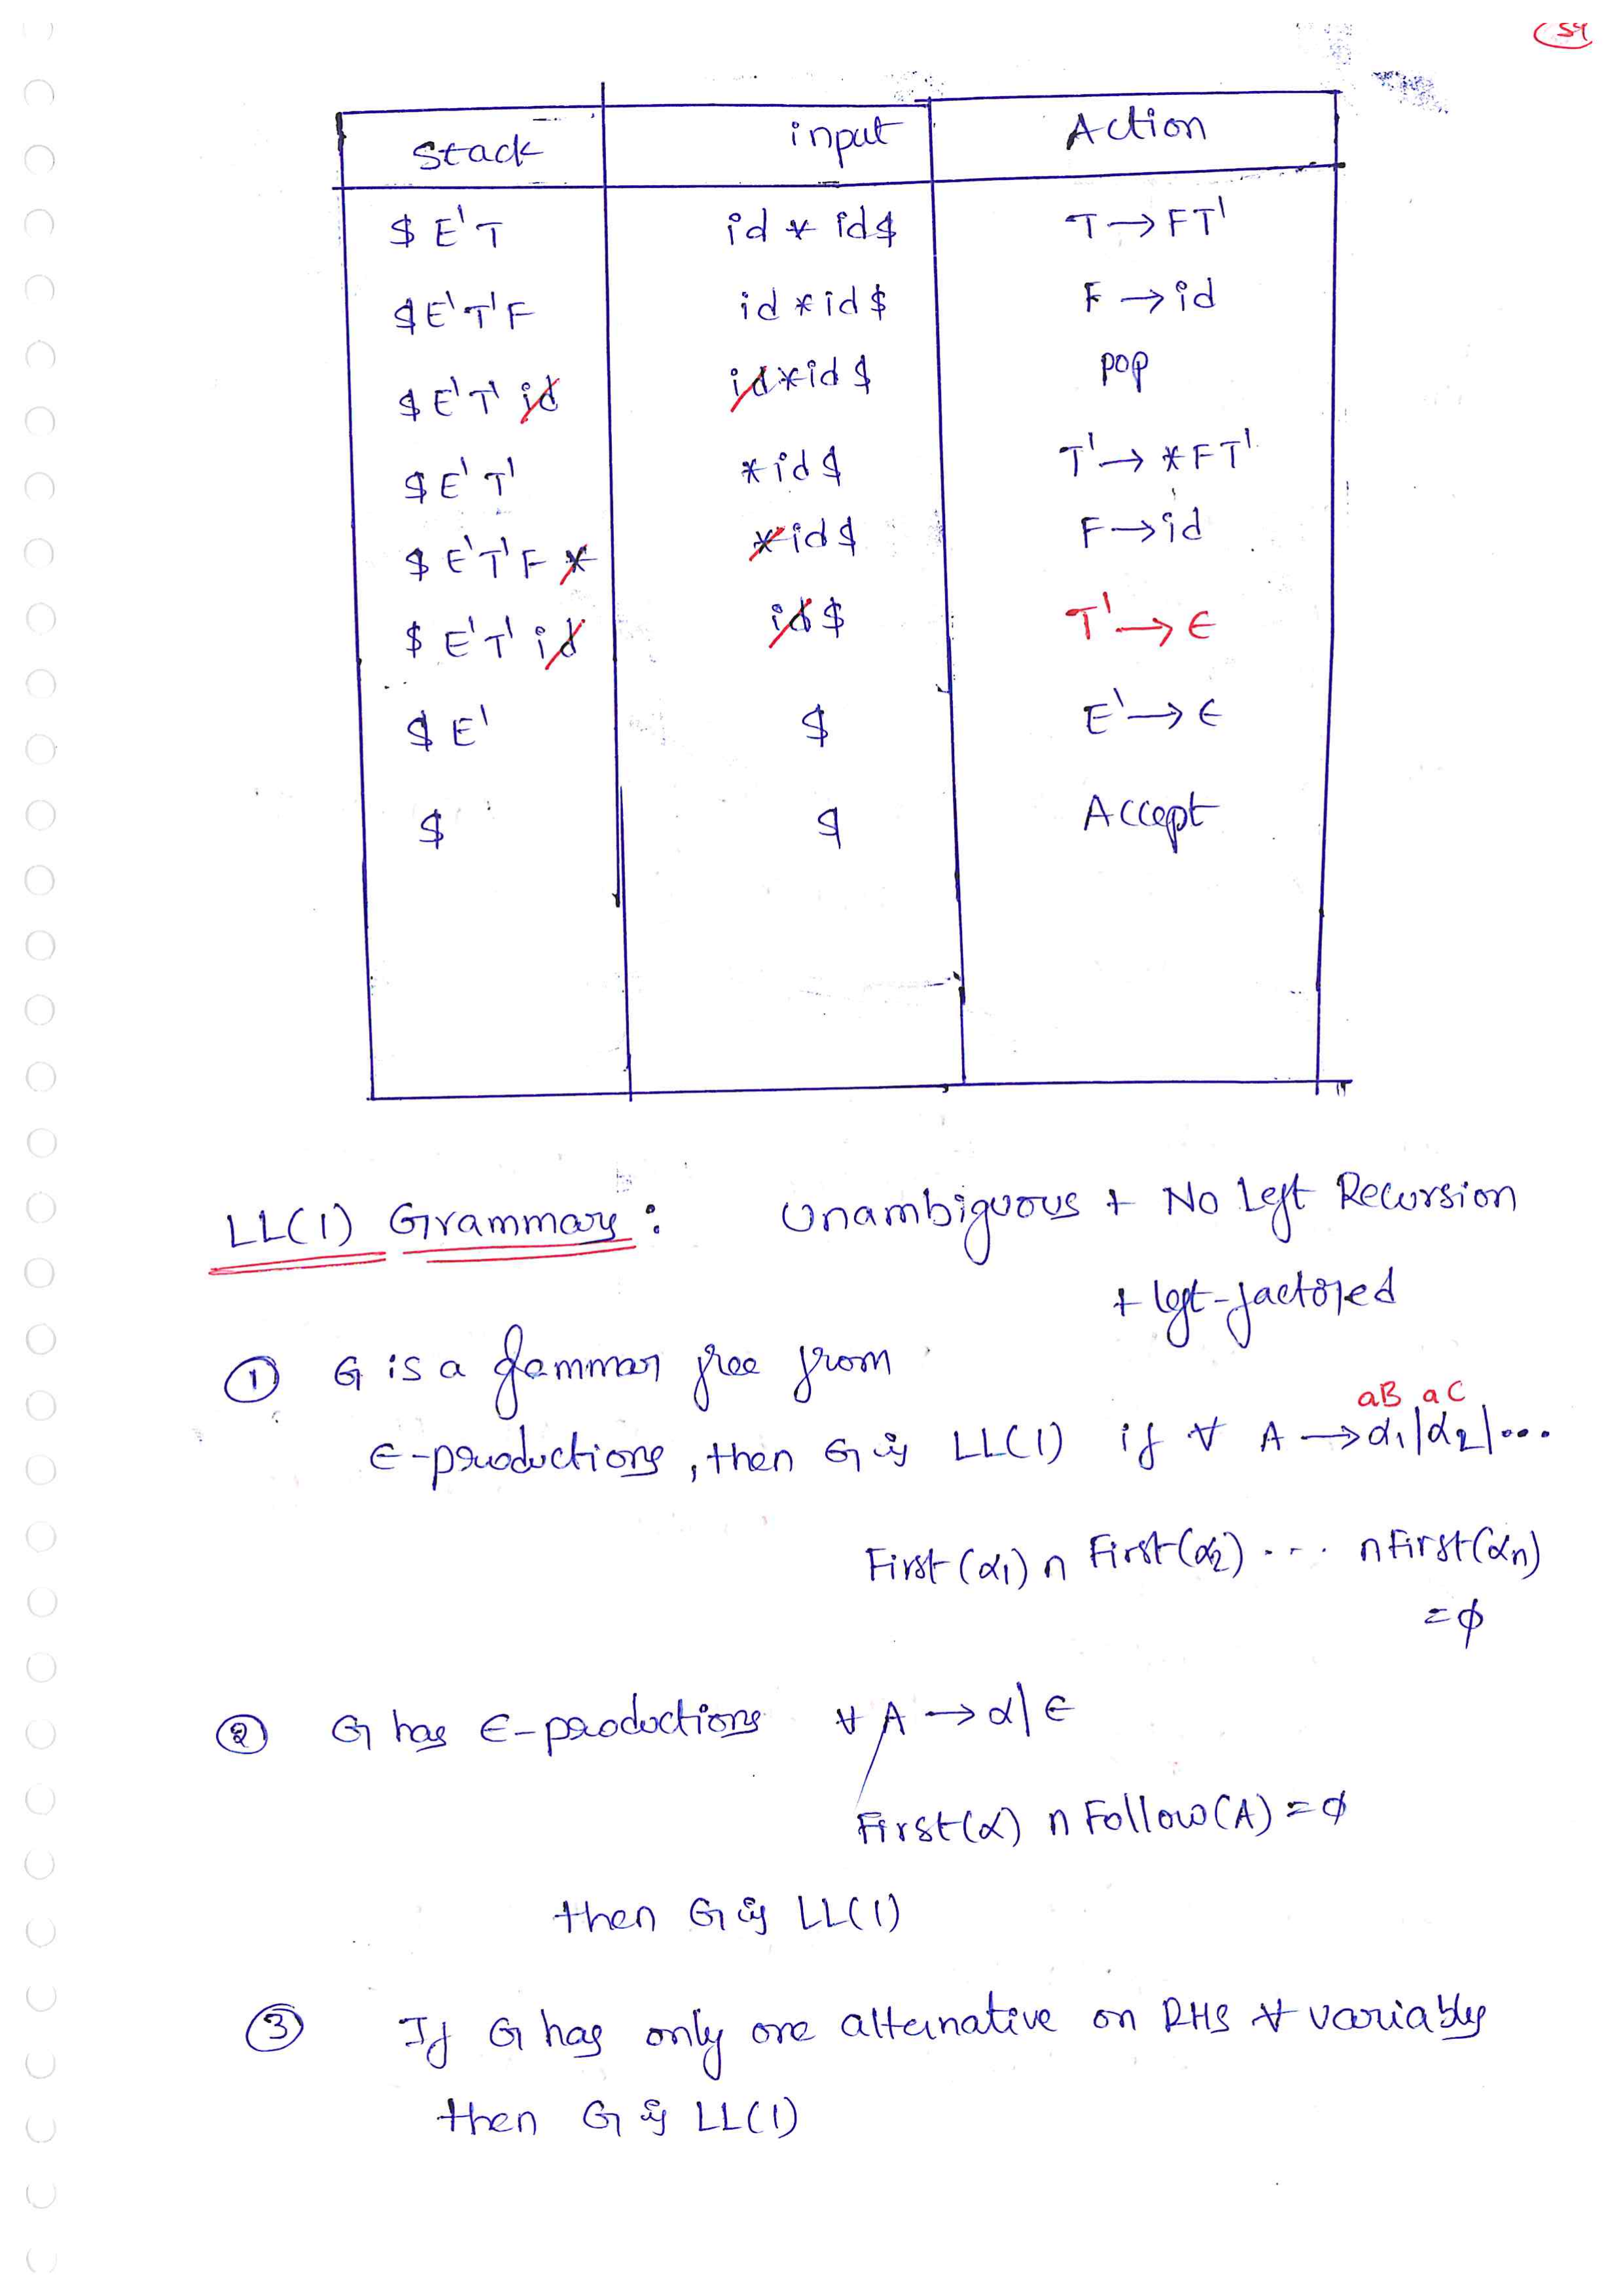 54
Stack input Action
$ E'T id * id$ T → FT'
$E'T'F id * id $ F → id
$ E'T' id id*id $ pop
$ E'T' * id $ T' → *FT'
$ E'T'F * * id $ F → id
$ E'T' id id $ T' → ϵ
$ E' $ E' → ϵ
$ $ Accept
LL(1) Grammar : Unambiguous + No Left Recursion
+ left-factored
① G is a grammar free from
aB aC
ϵ-productions, then G is LL(1) if ∀ A → α1|α2|...
First(α1) ∩ First(α2) .... ∩ First(αn)
= ϕ
② G has ϵ-productions ∀ A → α|ϵ
First(α) ∩ Follow(A) = ϕ
then G is LL(1)
③ If G has only one alternative on RHS ∀ variables
then G is LL(1)